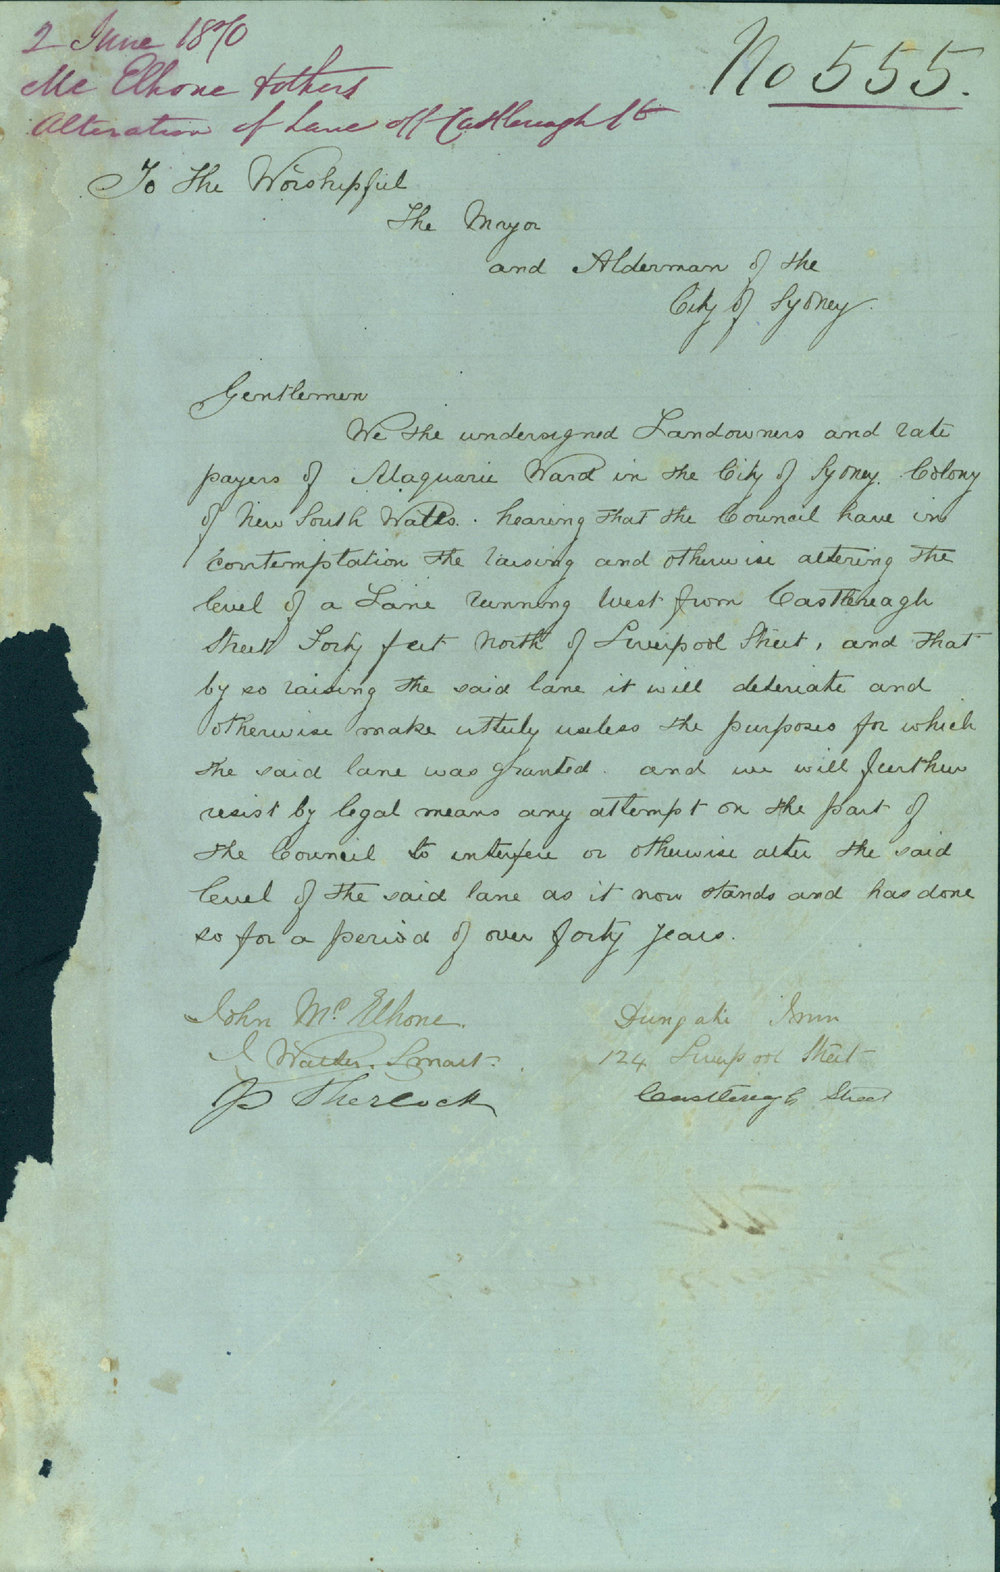 2 June 1870
Mc Elhone & others
Alteration of Lane off Castlereagh St
No 555.
To the Worshipful
The Mayor
and Alderman of the
City of Sydney.
Gentlemen
We the undersigned Landowners and rate
payers of Maquarie Ward in the City of Sydney. Colony
of New South Wales. hearing that the Council have in
contemptation the raising and otherwise altering the
level of a Lane running West from Castlereagh
Street Forty feet North of Liverpool Street, and that
by so raising the said lane it will deteriate and
otherwise make utterly useless the purposes for which
the said lane was granted. and we will further
resist by legal means any attempt on the part of
the Council to interfere or otherwise alter the said
level of the said lane as it now stands and has done
so for a period of over forty years.
John Mc Elhone. Dungate Inn
J Walter Smart. 124 Liverpool Street
P Sherlock Castlereagh Street